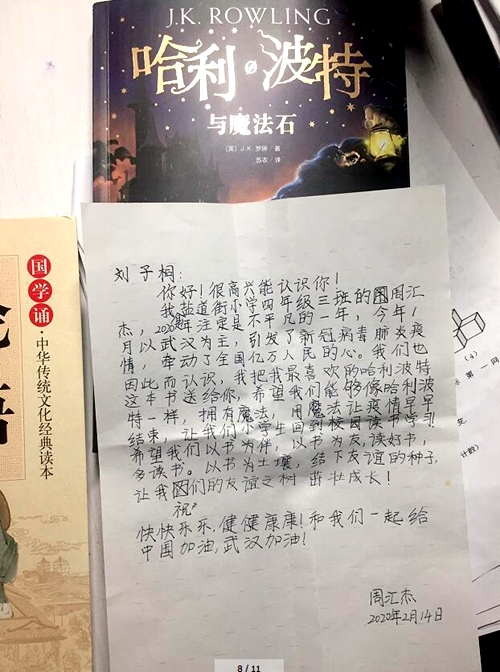 J.K. ROWLING
哈利·波特
与魔法石
〔英〕J.K. 罗琳 / 著
苏农 / 译
国学诵·中华传统文化经典读本
语
刘子桐:
你好!很高兴能认识你!
我盐道街小学四年级三班的周汇
杰,2020年注定是不平凡的一年,今年1
月以武汉为主,引发了新冠病毒肺炎疫
情,牵动了全国亿万人民的心。我们也
因此而认识,我把我最喜欢的哈利波特
这本书送给你,希望我们能够像哈利波
特一样,拥有魔法,用魔法让疫情早早
结束,让我们小学生回到校园读书学习!
希望我们以书为伴,以书为友,读好书,
多读书。以书为土壤,结下友谊的种子,
让我们的友谊之树茁壮成长!
祝
快快乐乐,健健康康!和我们一起给
中国加油,武汉加油!
周汇杰
2020年2月14日
(4)
第一网
8 / 11